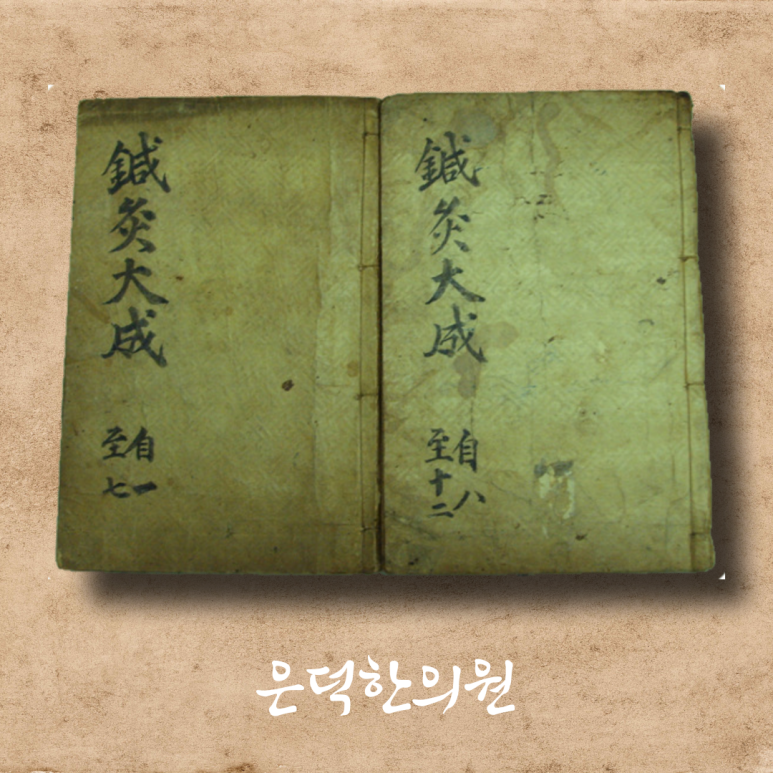 鍼灸大成
自一
至七
鍼灸大成
自八
至十二
은덕한의원